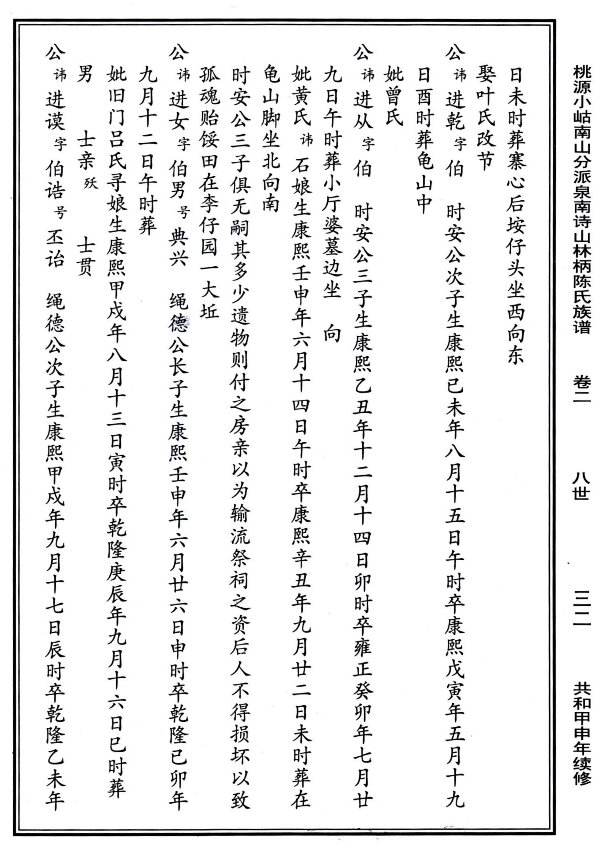 桃源小岵南山分派泉南诗山林柄陈氏族谱 卷二 八世 三二 共和甲申年续修
日未时葬寨心后垵仔头坐西向东
娶叶氏改节
公讳进乾字伯 时安公次子生康熙己未年八月十五日午时卒康熙戊寅年五月十九
日酉时葬龟山中
妣曾氏
公讳进从字伯 时安公三子生康熙乙丑年十二月十四日卯时卒雍正癸卯年七月廿
九日午时葬小厅婆墓边坐 向
妣黄氏讳石娘生康熙壬申年六月十四日午时卒康熙辛丑年九月廿二日未时葬在
龟山脚坐北向南
时安公三子俱无嗣其多少遗物则付之房亲以为输流祭祠之资后人不得损坏以致
孤魂贻馁田在李仔园一大坵
公讳进女字伯男号典兴 绳德公长子生康熙壬申年六月廿六日申时卒乾隆己卯年
九月十二日午时葬
妣旧门吕氏寻娘生康熙甲戌年八月十三日寅时卒乾隆庚辰年九月十六日巳时葬
男 士亲殀 士贯
公讳进谟字伯诰号丕诒 绳德公次子生康熙甲戌年九月十七日辰时卒乾隆乙未年